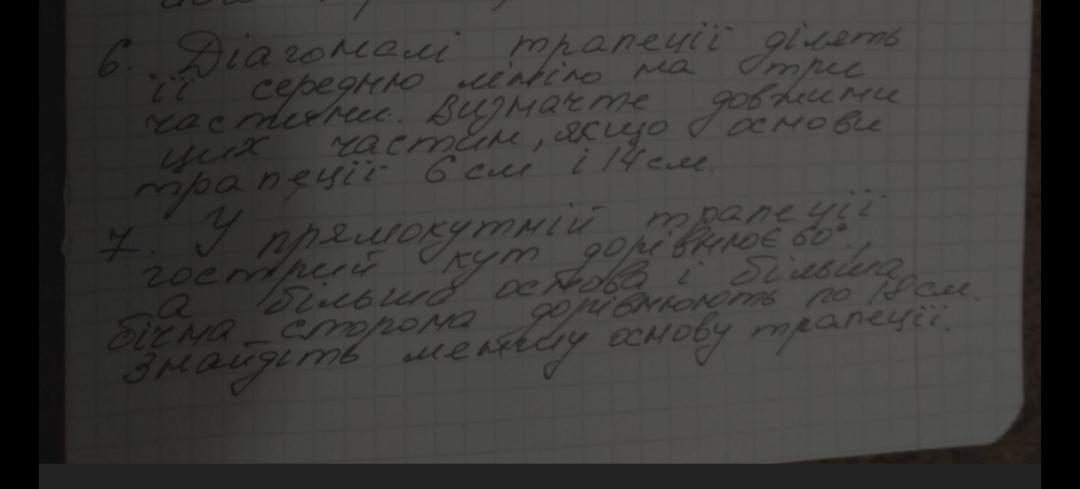 6. Діагоналі трапеції ділять
її середню лінію на три
частини. Визначте довжини
цих частин, якщо основи
трапеції 6 см і 14 см.
7. У прямокутній трапеції
гострий кут дорівнює 60°,
а більша основа і більша
бічна сторона дорівнюють по 18 см.
Знайдіть меншу основу трапеції.